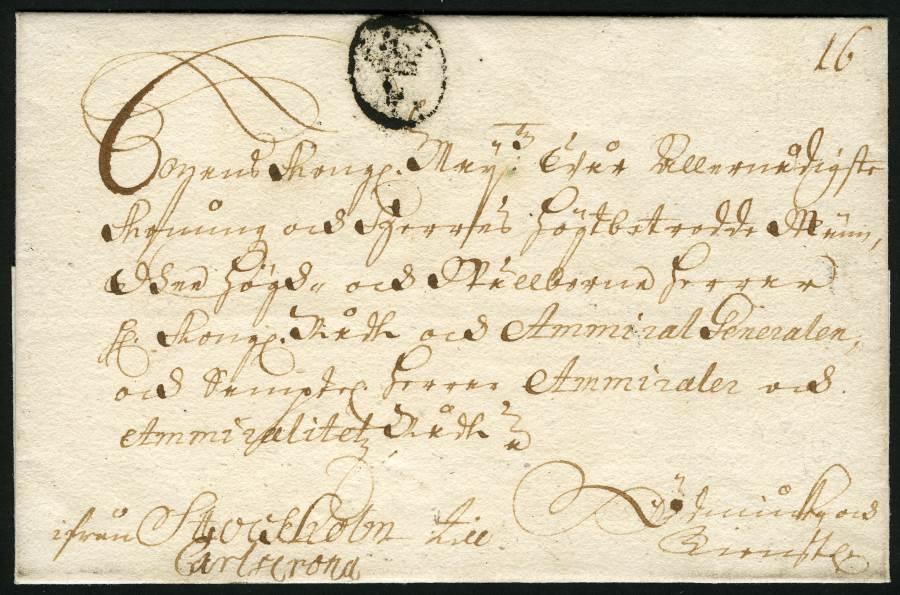 16
Kongl. May:tz Wår Allernådigste
Konung och Herres Högtbetrodde Män,
Den Hög- och Wällborne Herrer
Kongl. Rådh och Ammiral Generalen,
och Samptel. Herrer Ammiraler och
Ammiralitetz Rådh
Ödmiukel. och
ifrån Stockholm till
Carlscrona